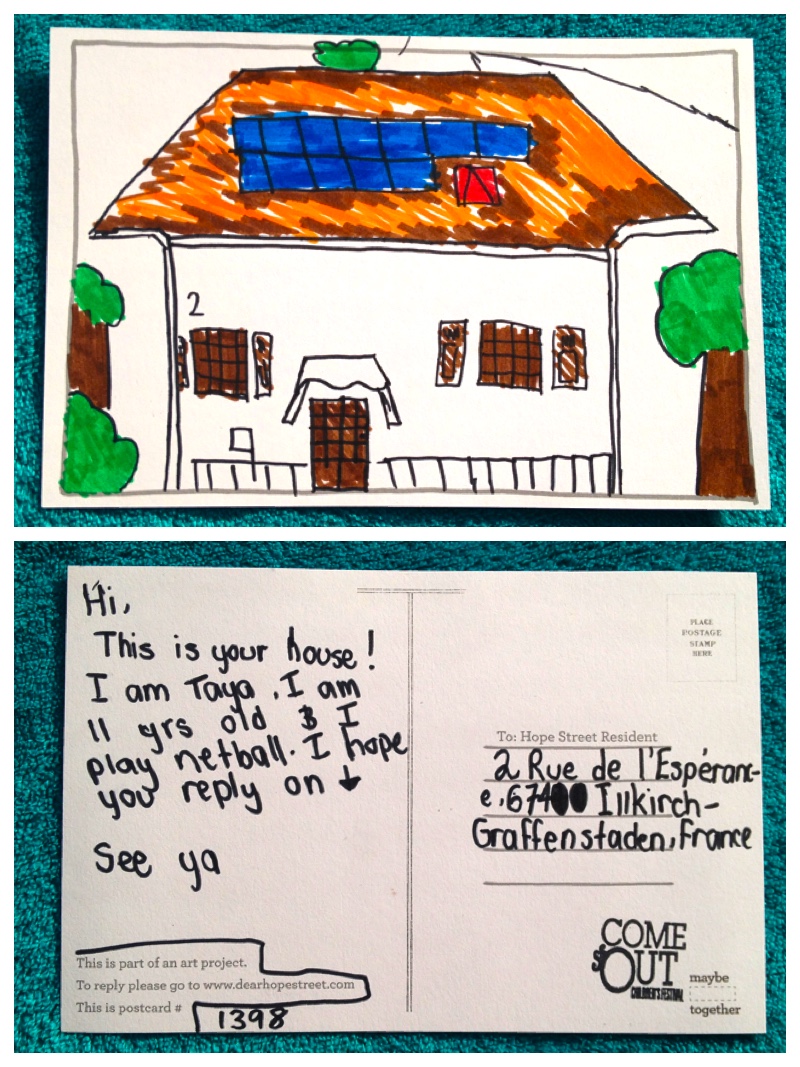 2
Hi,
This is your house!
I am Taya. I am
11 yrs old & I
play netball. I hope
you reply on ↓
See ya
This is part of an art project.
To reply please go to www.dearhopestreet.com
This is postcard #
1398
PLACE
POSTAGE
STAMP
HERE
To: Hope Street Resident
2 Rue de l'Espéranc-
e, 67400 Illkirch-
Graffenstaden, France
COME
OUT
CHILDREN'S FESTIVAL
maybe
together